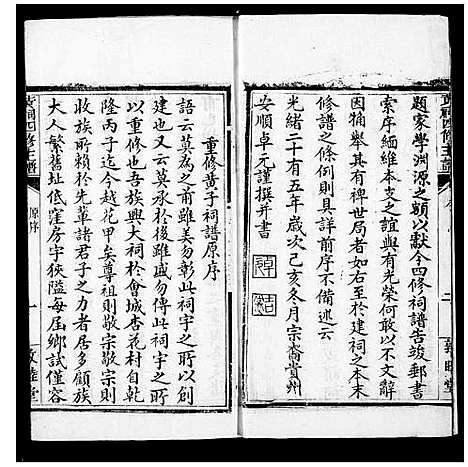 題家學淵源之額以獻今四修祠譜告竣郵書
索序緬維本支之誼與有光榮何敢以不文辭
因犒舉其有裨世局者如右至於建祠之本末
修譜之條例則具詳前序不備述云
光緒二十有五年歲次己亥冬月宗裔貴州
安順卓元謹撰并書
重修黃子祠譜原序
語云莫為之前雖美勿彰此祠宇之所以創
建也又云莫承於後雖盛勿傳此祠宇之所
以重修也吾族與大祠於會城杏花村自乾
隆丙子迄今越花甲矣尊祖則敬宗敬宗則
收族所賴於先輩諸君子之力者居多顧族
大人繁舊址低窪房宇狹隘每屆鄉試僅容
原序
一
敦睦堂